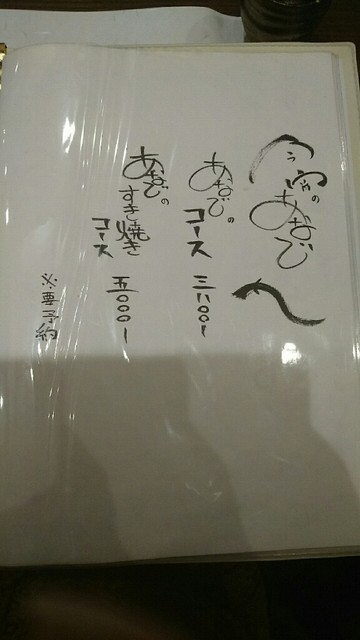 今宵の
あなび
あなびの
コース 三八〇〇ー
あなびの
すき焼き
コース 五〇〇〇ー
※要予約